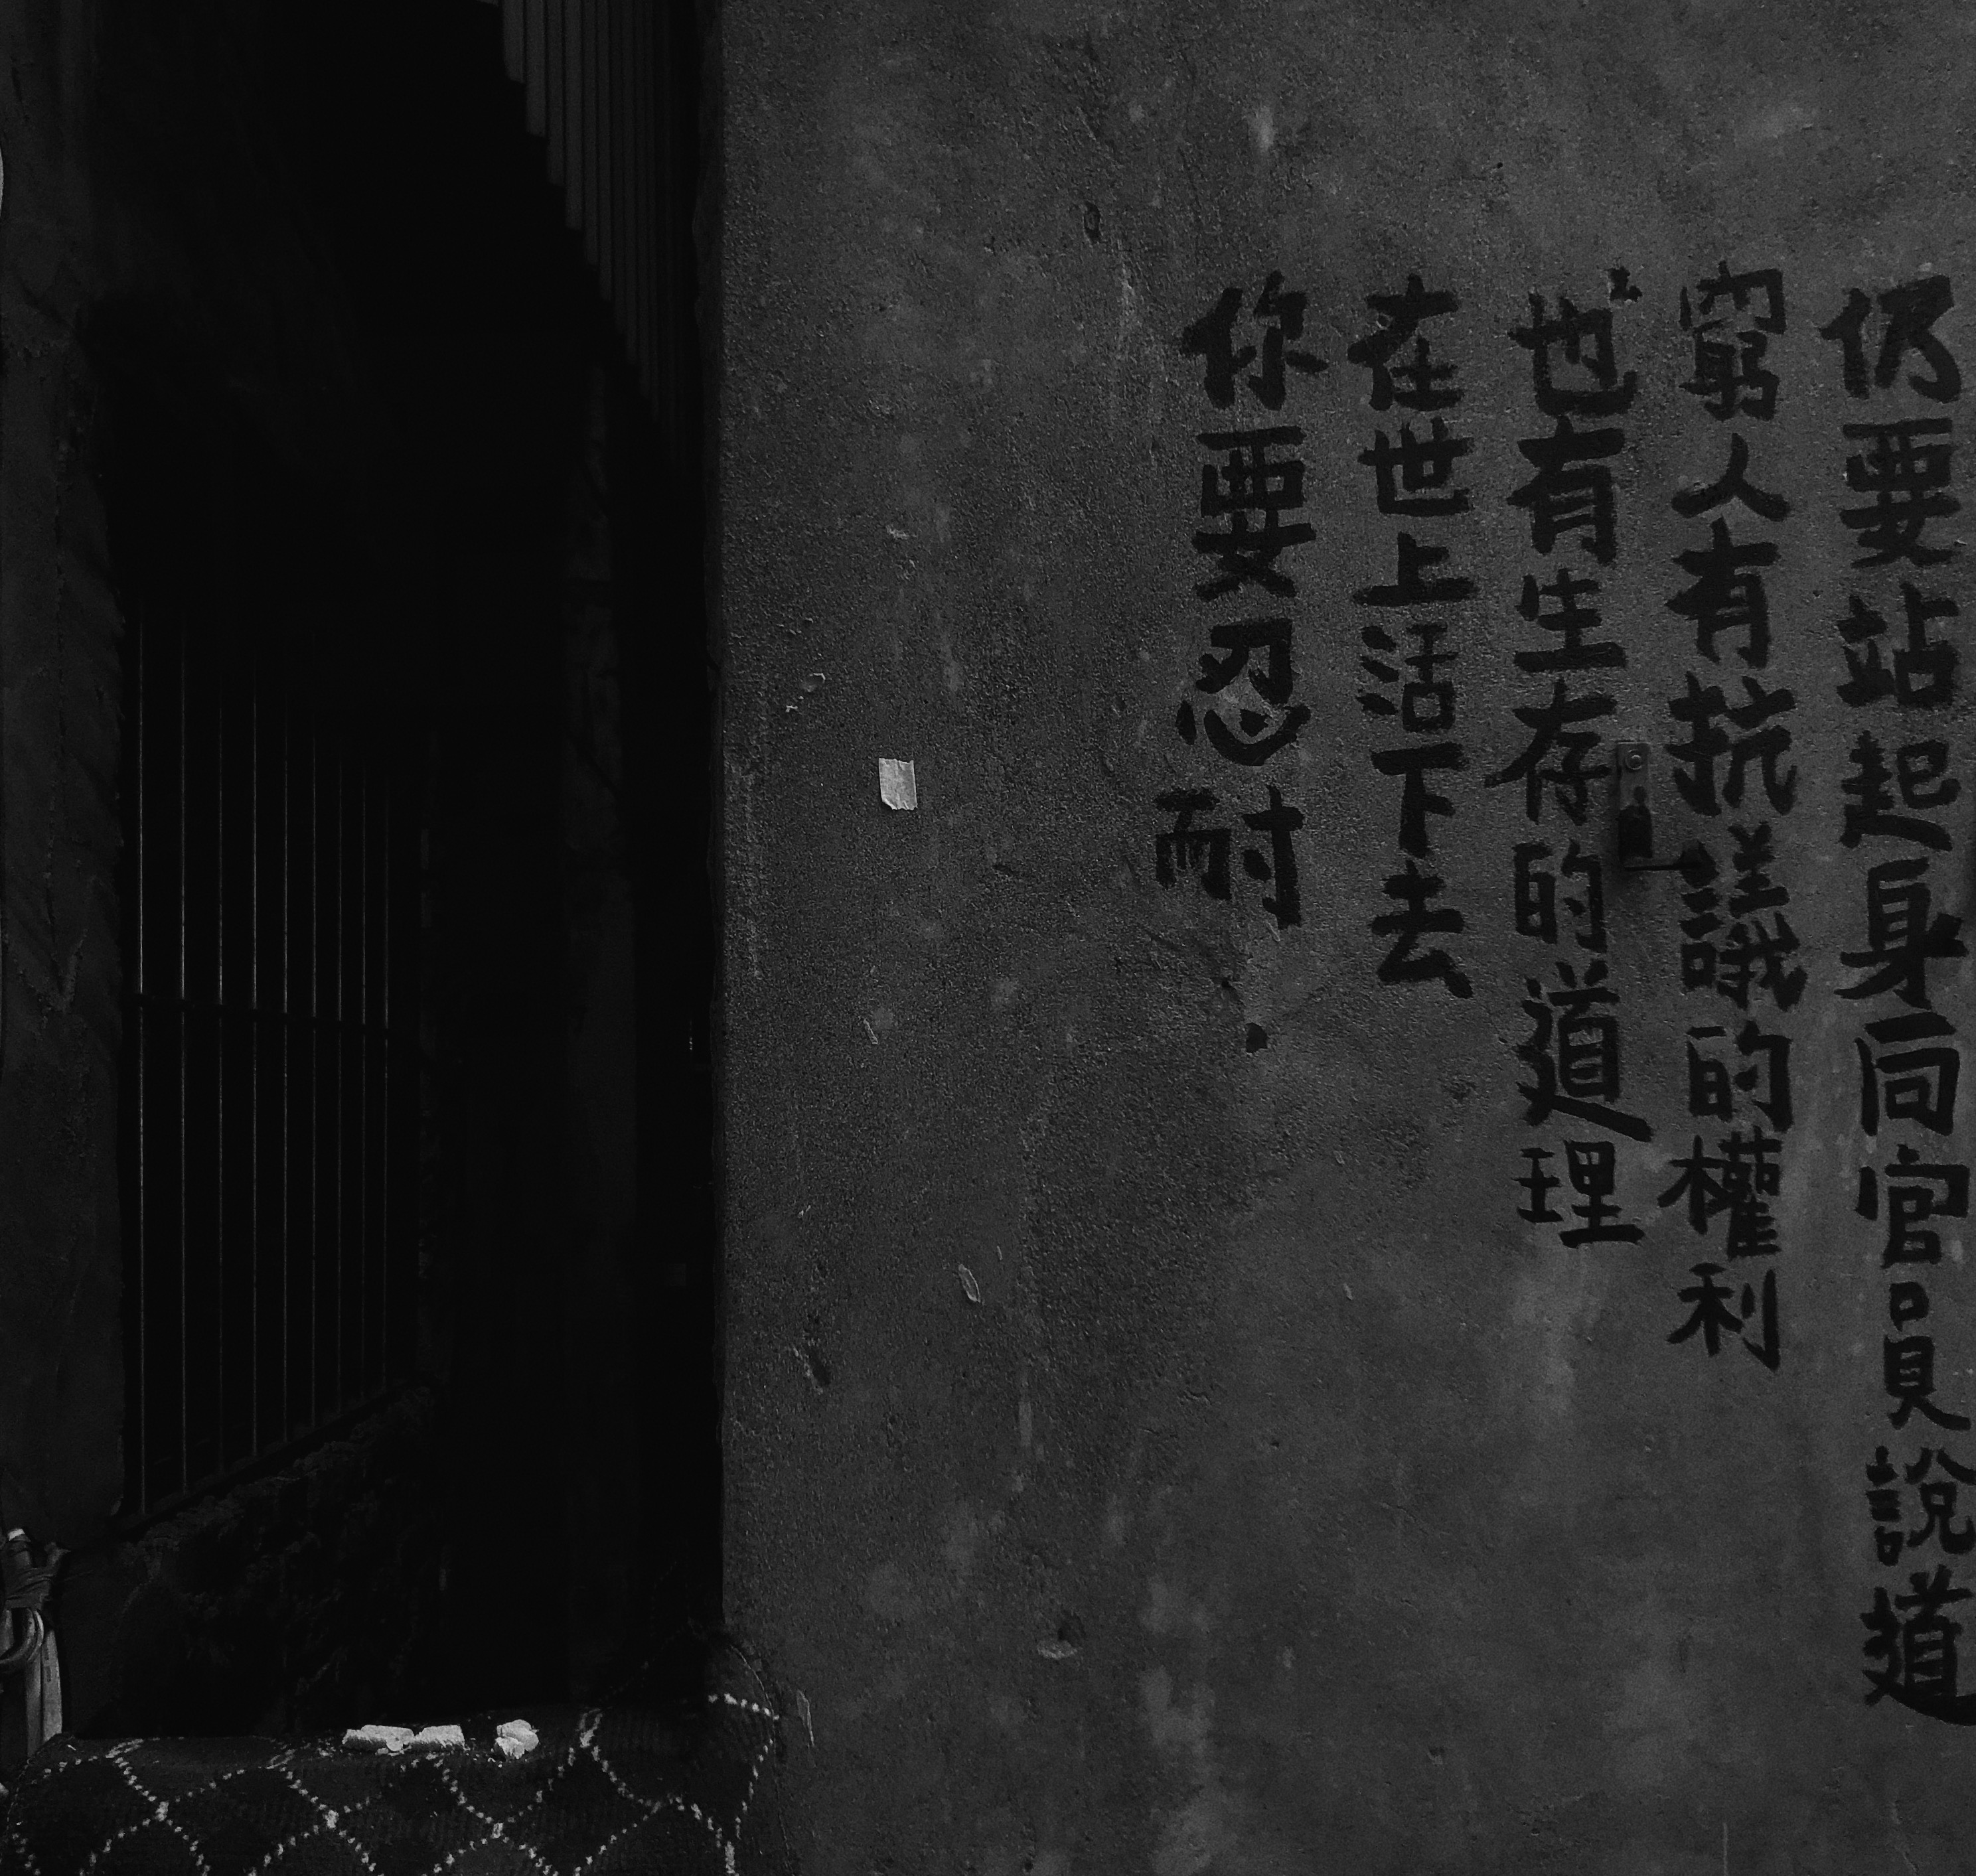 仍要站起身向官員說道
窮人有抗議的權利
也有生存的道理
在世上活下去
你要忍耐